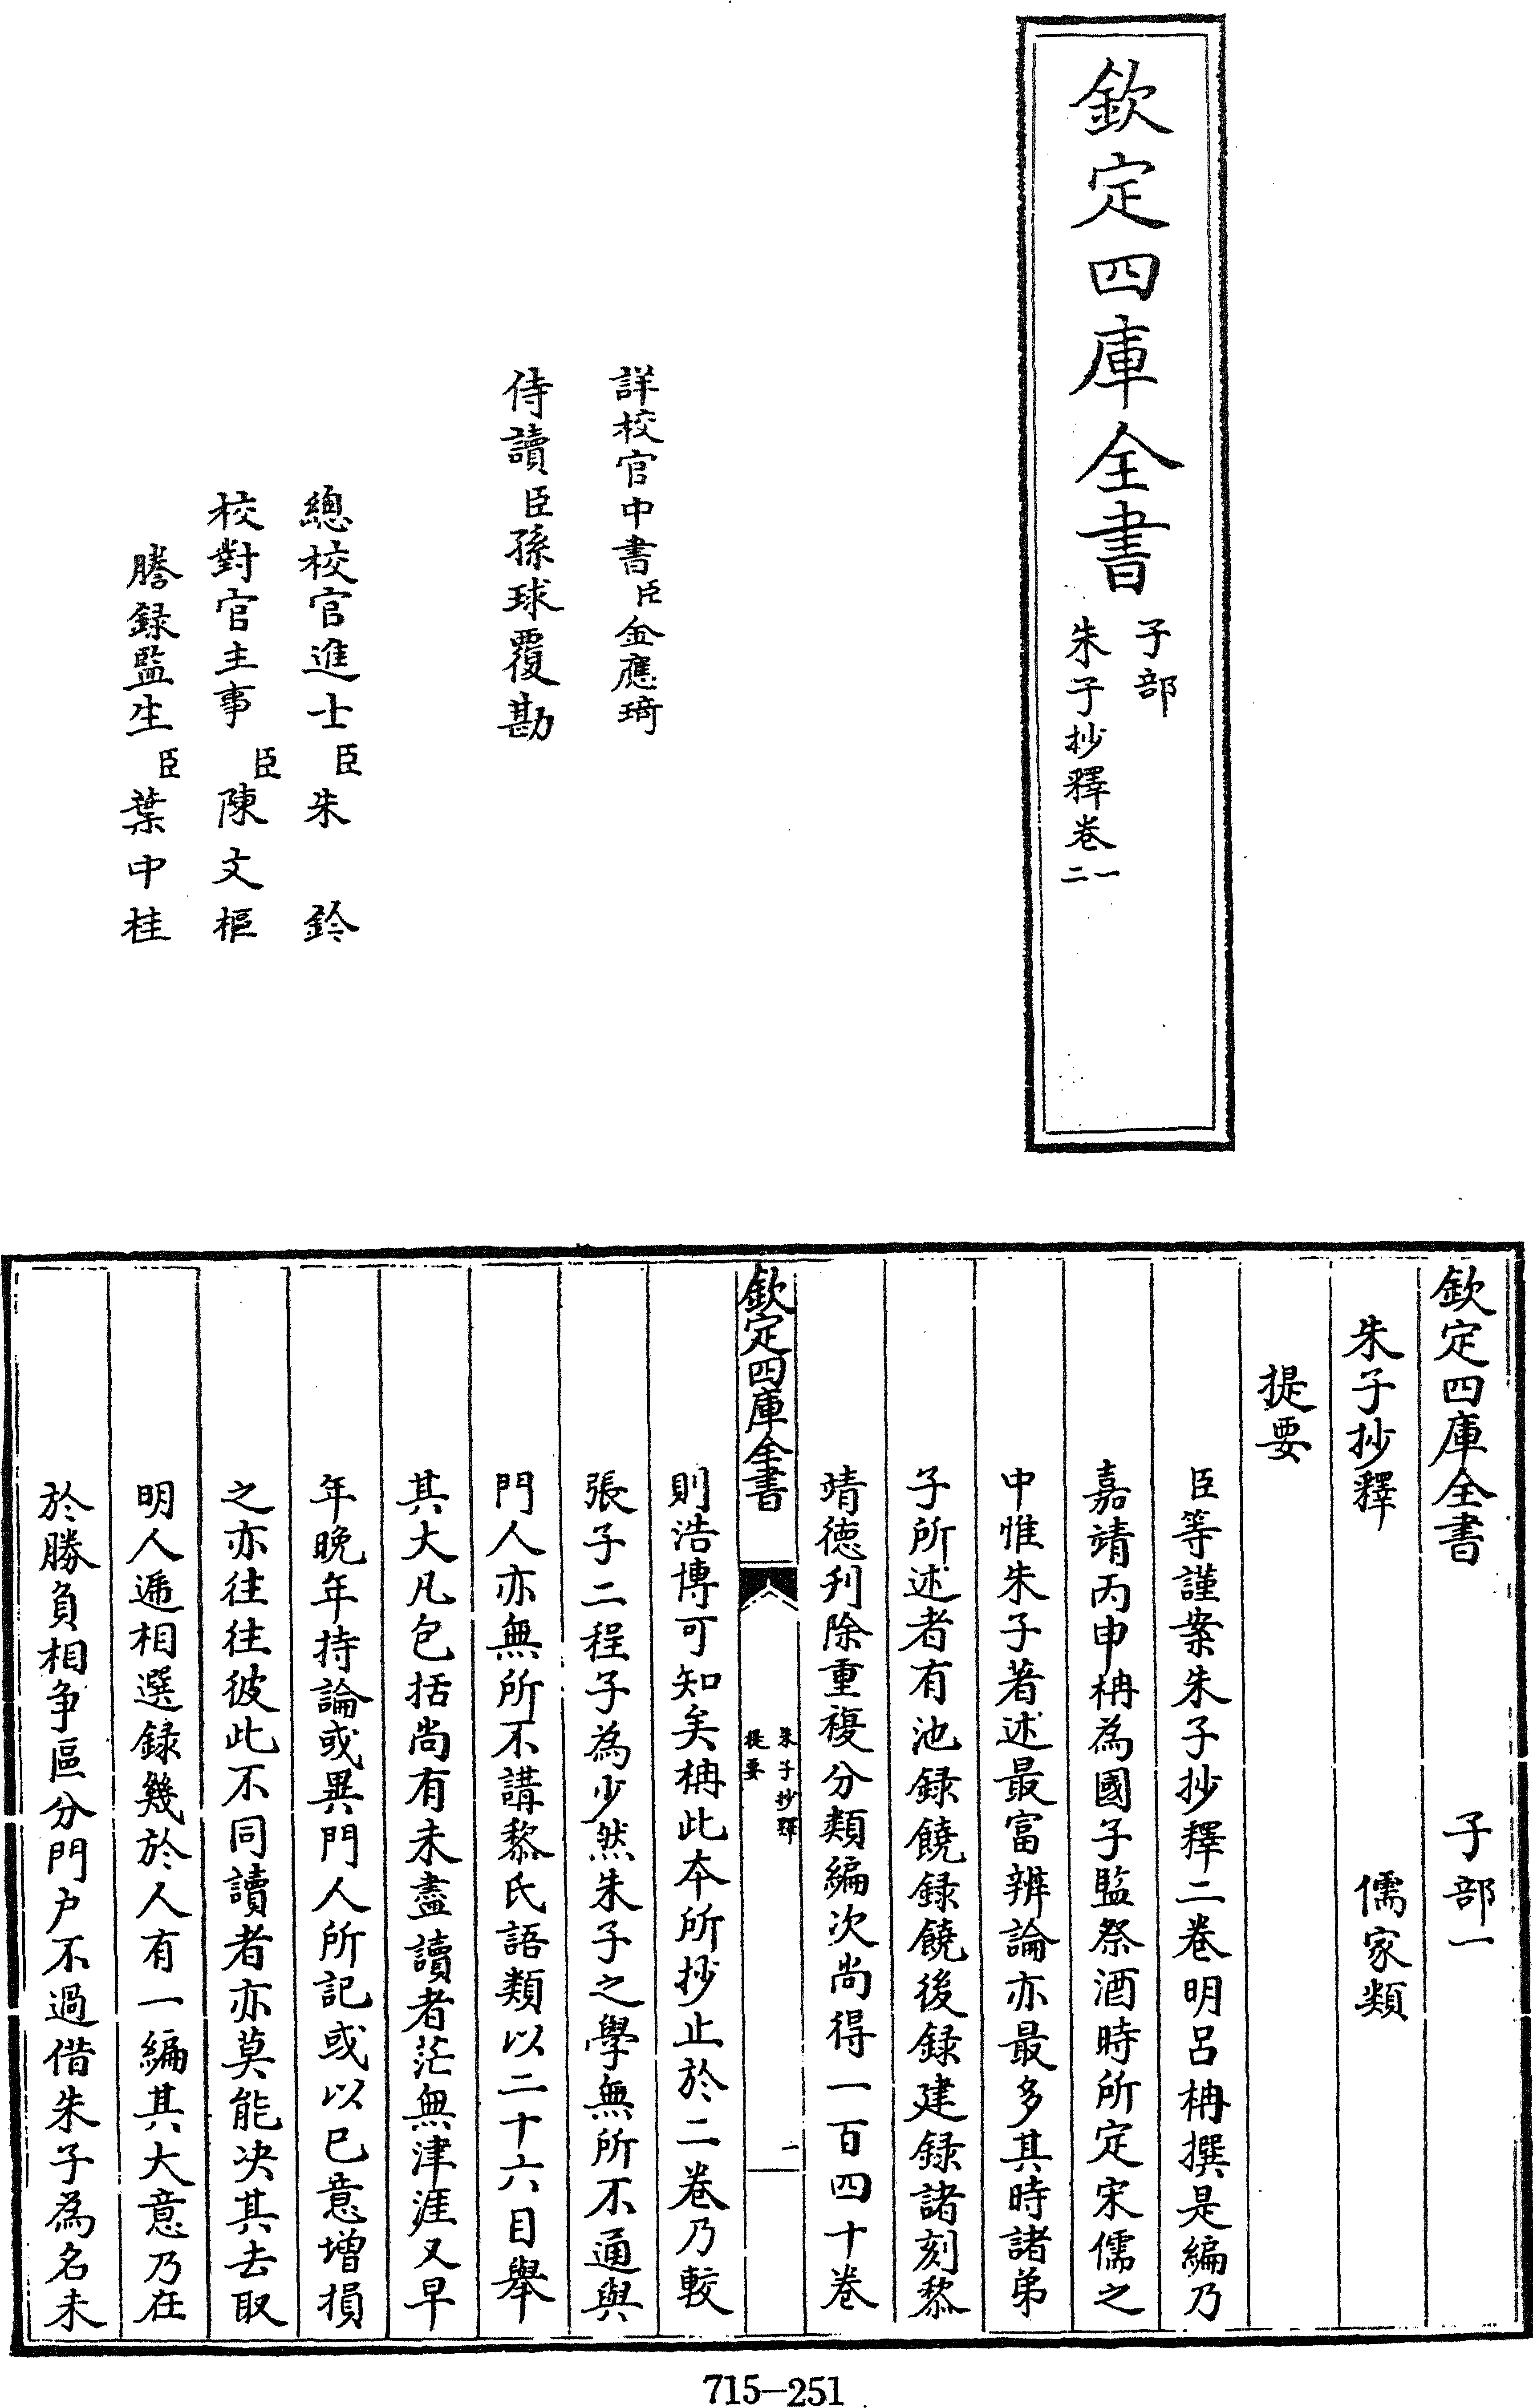 欽定四庫全書
子部
朱子抄釋卷一
二
詳校官中書臣金應琦
侍讀臣孫球覆勘
總校官進士臣朱鈐
校對官主事臣陳文樞
謄録監生臣葉中桂
欽定四庫全書 子部一
朱子抄釋 儒家類
提要
臣等謹案朱子抄釋二卷明呂柟撰是編乃
嘉靖丙申柟為國子監祭酒時所定宋儒之
中惟朱子著述最富辨論亦最多其時諸弟
子所述者有池録饒録饒後録建録諸刻黎
靖德刋除重複分類編次尚得一百四十卷
欽定四庫全書
朱子抄釋
提要
一
則浩博可知矣柟此本所抄止於二卷乃較
張子二程子為少然朱子之學無所不通與
門人亦無所不講黎氏語類以二十六目舉
其大凡包括尚有未盡讀者茫無津涯又早
年晚年持論或異門人所記或以已意增損
之亦往往彼此不同讀者亦莫能决其去取
明人遞相選録幾於人有一編其大意乃在
於勝負相争區分門户不過借朱子為名未
715-251